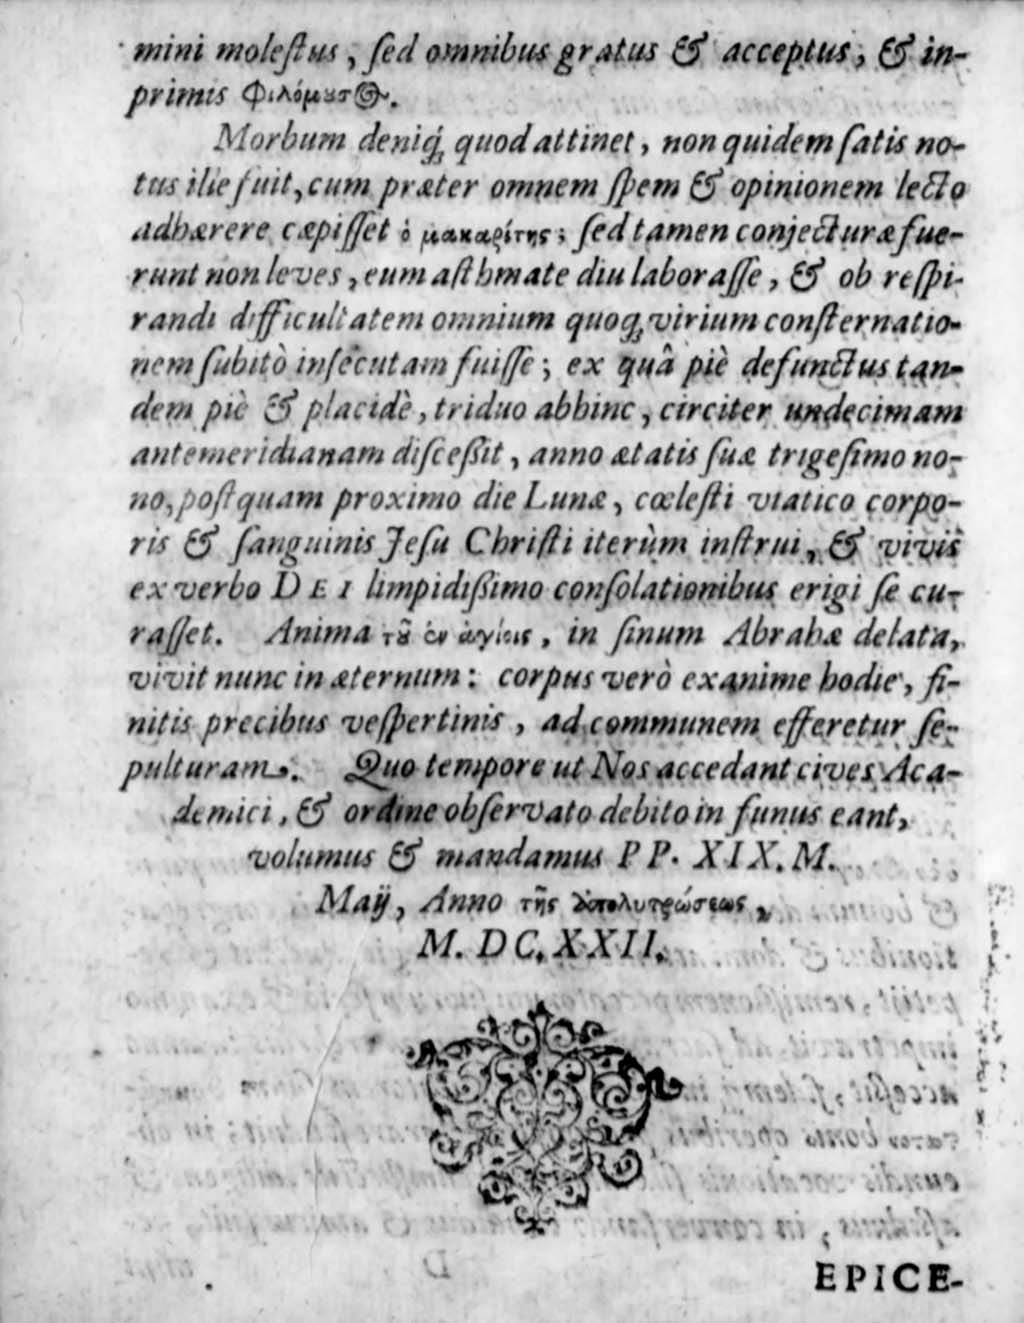 mini moleſtus, ſed omnibus gratus & acceptus, & in-
primis Φιλόμυσ⊙.
Morbum deniq́; quod attinet, non quidem ſatis no-
tus ille fuit, cum præter omnem ſpem & opinionem lecto
adhærere cæpiſſet ὁ μακαρίτης; ſed tamen conjecturæ fue-
runt non leves, eum aſthmate diu laboraſſe, & ob reſpi-
randi difficultatem omnium quoq́; virium conſternatio-
nem ſubitò inſecutam fuiſſe; ex quâ piè defunctus tan-
dem piè & placidè, triduo abhinc, circiter undecimam
antemeridianam diſceßit, anno ætatis ſuæ trigeſimo no-
no, poſtquam proximo die Lunæ, cœleſti viatico corpo-
ris & ſanguinis Jeſu Chriſti iterùm inſtrui, & vivis
ex verbo DEI limpidißimo conſolationibus erigi ſe cu-
raſſet. Anima τοῦ ἐν ἁγίοις, in ſinum Abrahæ delata,
vivit nunc in æternum: corpus verò exanime hodie, fi-
nitis precibus veſpertinis, ad communem efferetur ſe-
pulturam. Quo tempore ut Nos accedant cives Aca-
demici, & ordine obſervato debito in funus eant,
volumus & mandamus PP. XIX. M.
Maÿ, Anno τῆς ἀπολυτρώσεως,
M. DC. XXII.
EPICE-